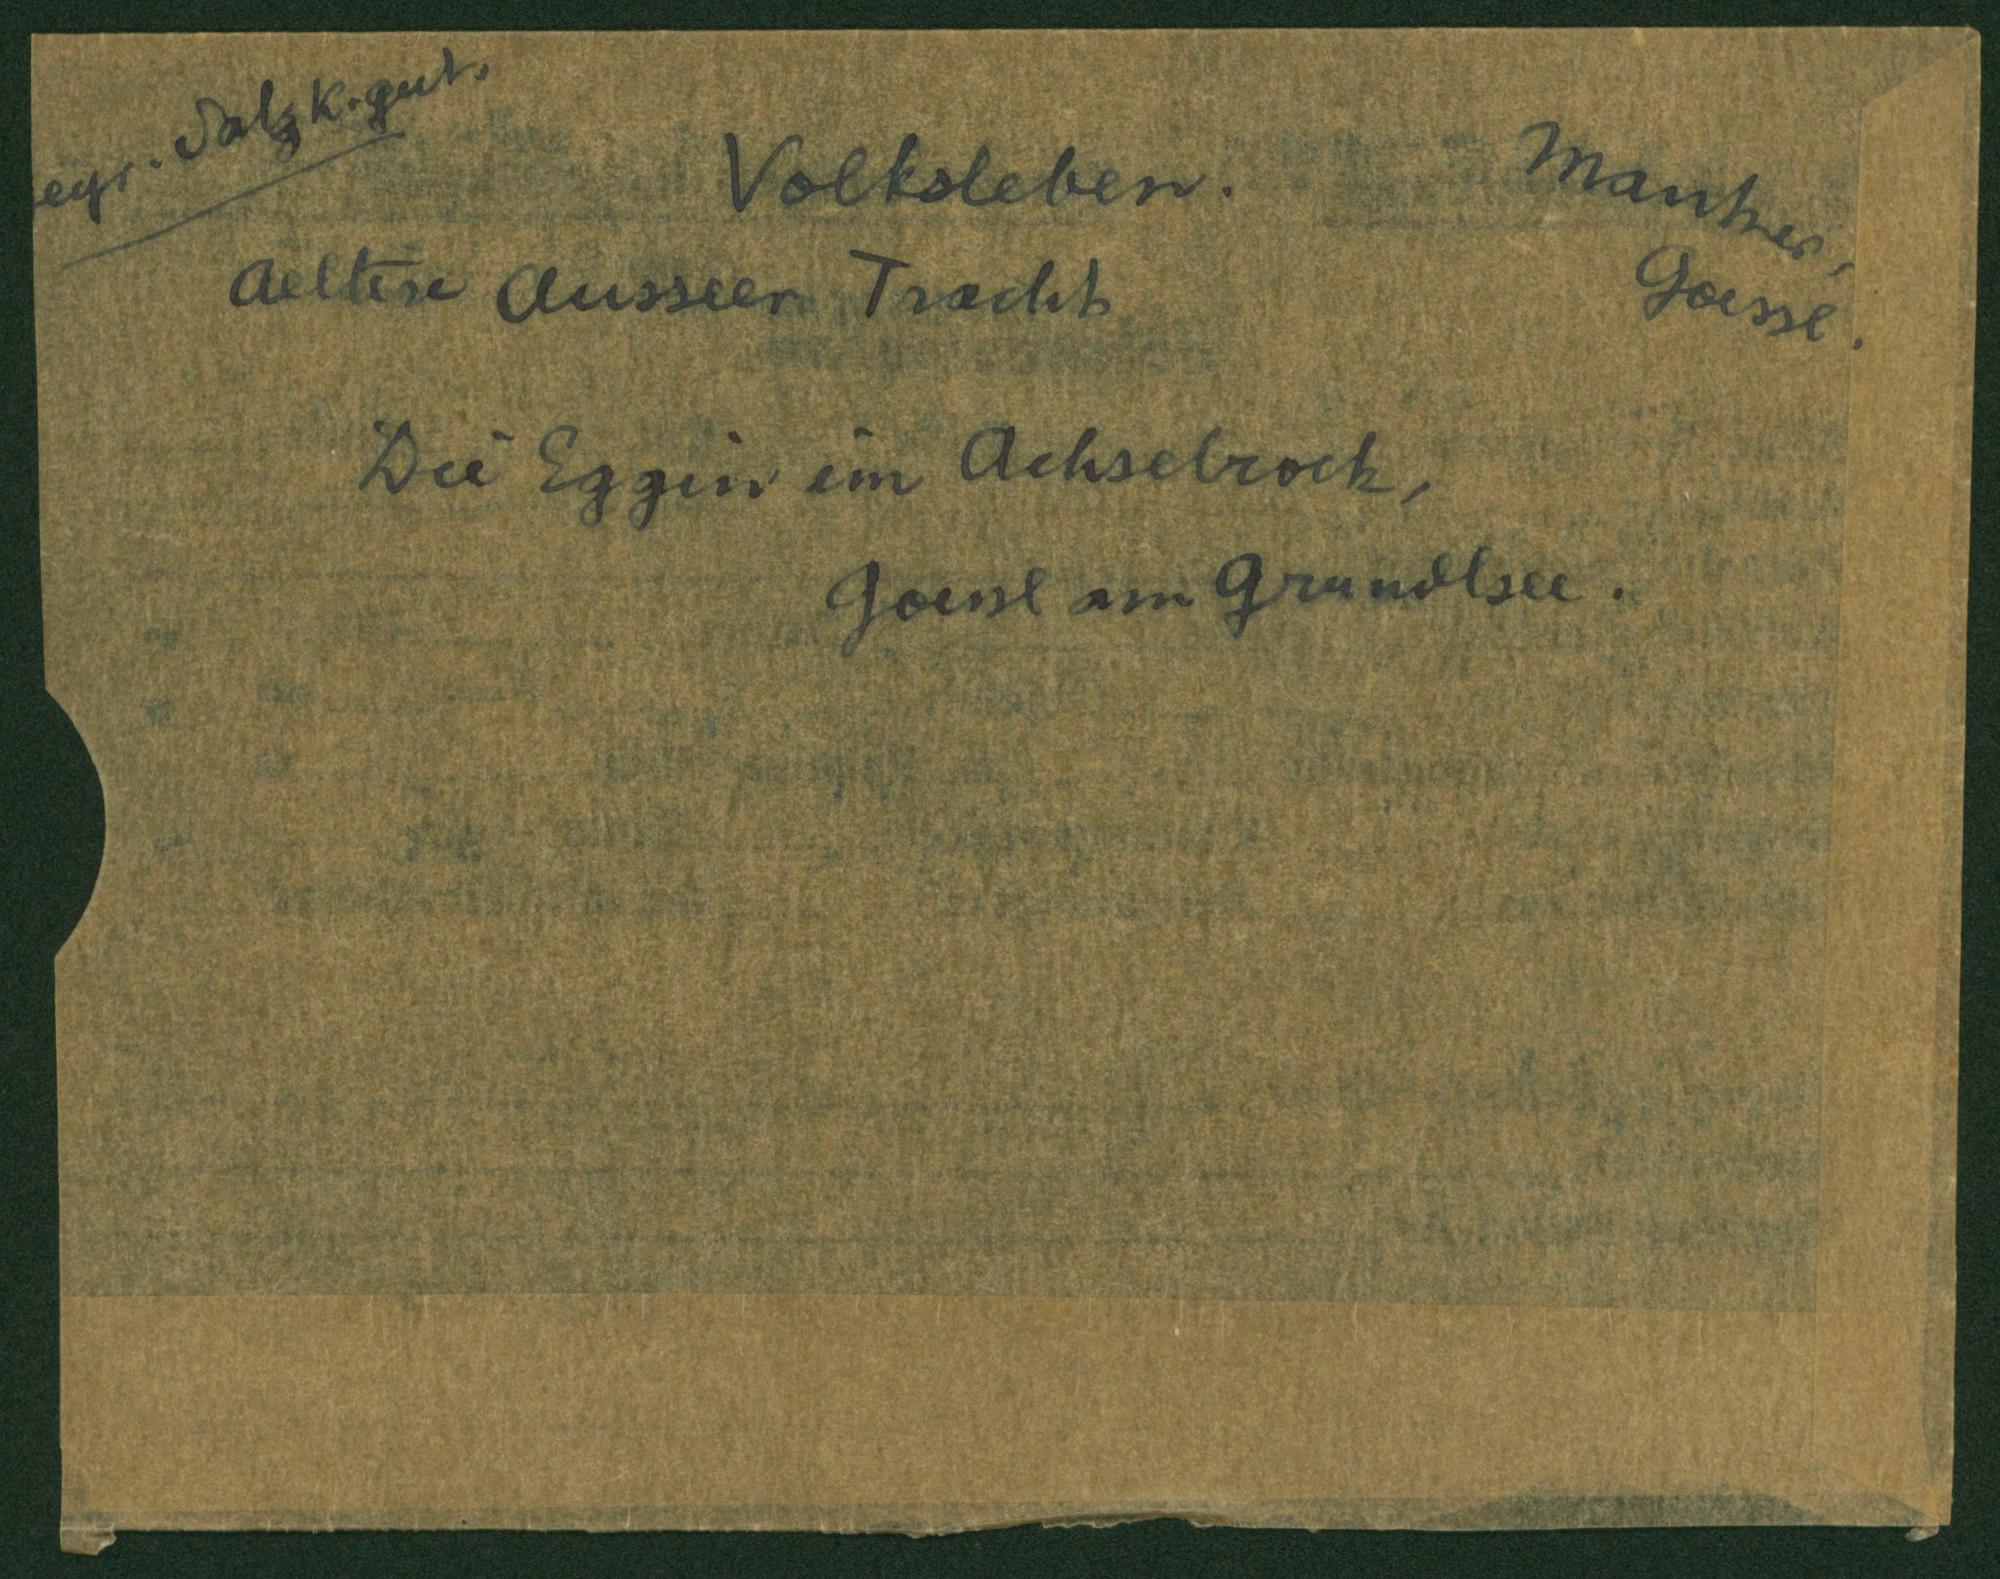 Salzk.gut.
Volksleben.
Aeltere Ausseer Tracht
Goessl.
Die Eggin im Achselrock,
Goessl am Grundlsee.